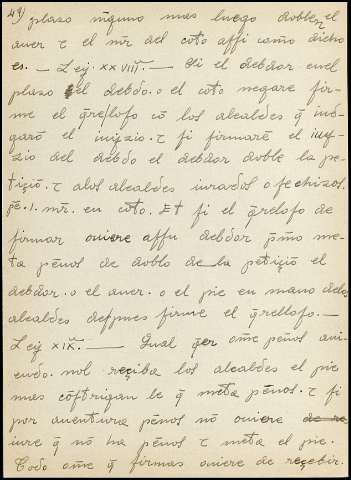 48) plazo nĩguno mas luego dobben el
auer τ el mr̃ del coto affi como dicho
es. — Ley. XXVIII. — Si el debdor enel
plazo del debdo. o el coto negare fir-
me el q̃rellofo cõ los alcaldes q̃ iud-
garõ el iuyzio. τ fi firmarẽ el iuy-
zio del debdo el debdor doble la pe-
tiçiõ. τ alos alcaldes iurados o fechizos.
pẽ .i. mr̃. en coto. Et fi el q̃rellofo de
firmar ouiere affu debdor p̃mo me-
ta pẽnos de doblo de la petiçiõ el
debdor. o el auer. o el pie en mano delos
alcaldes defpues firme el q̃rellofo. —
Ley XIX. — Qual q̃er om̃e peños aui-
endo. nol reçiba los alcaldes el pie
mas coftrigan le q̃ meta pẽnos. τ fi
por auentura pẽnos nõ ouiere
iure q̃ nõ ha pẽnos τ meta el pie.
Todo om̃e q̃ firmas ouiere de reçebir.